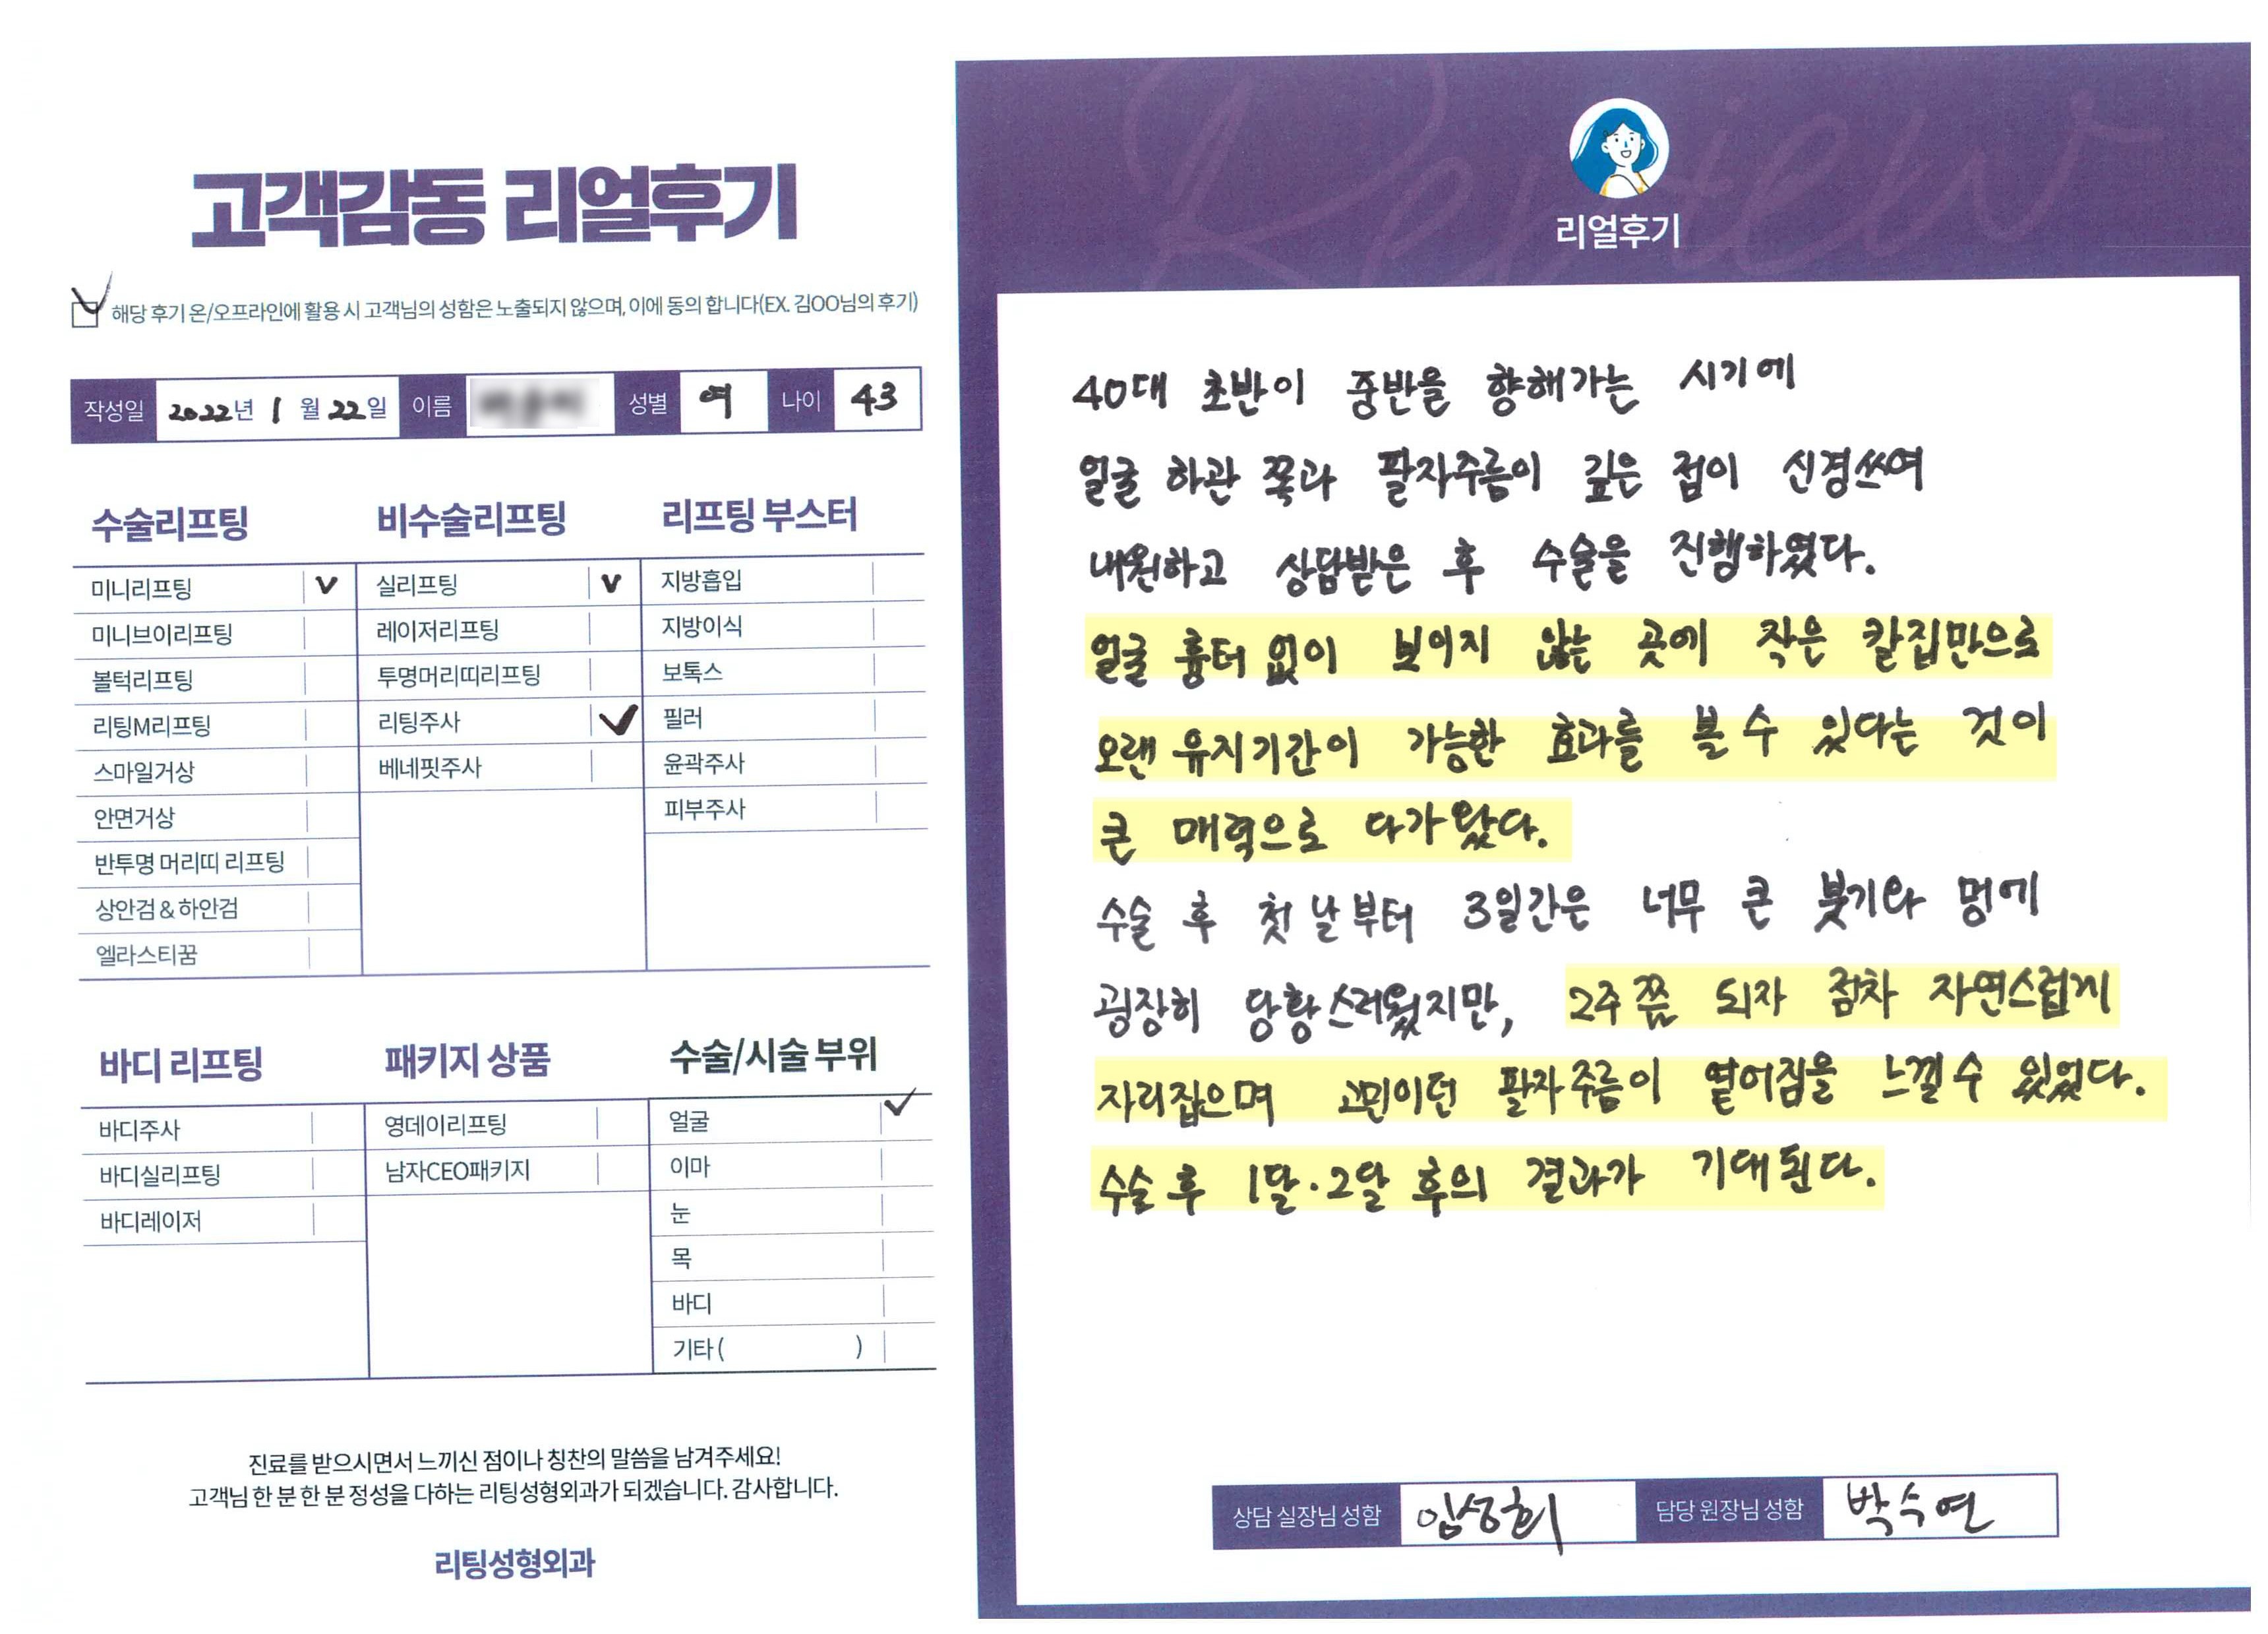 고객감동 리얼후기
해당 후기 온/오프라인에 활용 시 고객님의 성함은 노출되지 않으며, 이에 동의 합니다(EX. 김OO님의 후기)
작성일 2022년 1월 22일 이름 성별 여 나이 43
수술리프팅
미니리프팅 V
미니브이리프팅
볼턱리프팅
리팅M리프팅
스마일거상
안면거상
반투명 머리띠 리프팅
상안검 & 하안검
엘라스티꿈
비수술리프팅
실리프팅 V
레이저리프팅
투명머리띠리프팅
리팅주사 ✓
베네핏주사
리프팅 부스터
지방흡입
지방이식
보톡스
필러
윤곽주사
피부주사
바디 리프팅
바디주사
바디실리프팅
바디레이저
패키지 상품
영데이리프팅
남자CEO패키지
수술/시술 부위
얼굴 ✓
이마
눈
목
바디
기타 ( )
진료를 받으시면서 느끼신 점이나 칭찬의 말씀을 남겨주세요!
고객님 한 분 한 분 정성을 다하는 리팅성형외과가 되겠습니다. 감사합니다.
리팅성형외과
Review
리얼후기
40대 초반이 중반을 향해가는 시기에
얼굴 하관 쪽과 팔자주름이 깊은 점이 신경쓰여
내원하고 상담받은 후 수술을 진행하였다.
얼굴 흉터 없이 보이지 않는 곳에 작은 칼집만으로
오랜 유지기간이 가능한 효과를 볼 수 있다는 것이
큰 매력으로 다가왔다.
수술 후 첫 날부터 3일간은 너무 큰 붓기와 멍에
굉장히 당황스러웠지만, 2주쯤 되자 점차 자연스럽게
자리잡으며 고민이던 팔자주름이 옅어짐을 느낄 수 있었다.
수술 후 1달·2달 후의 결과가 기대된다.
상담 실장님 성함 임성희 담당 원장님 성함 박수연